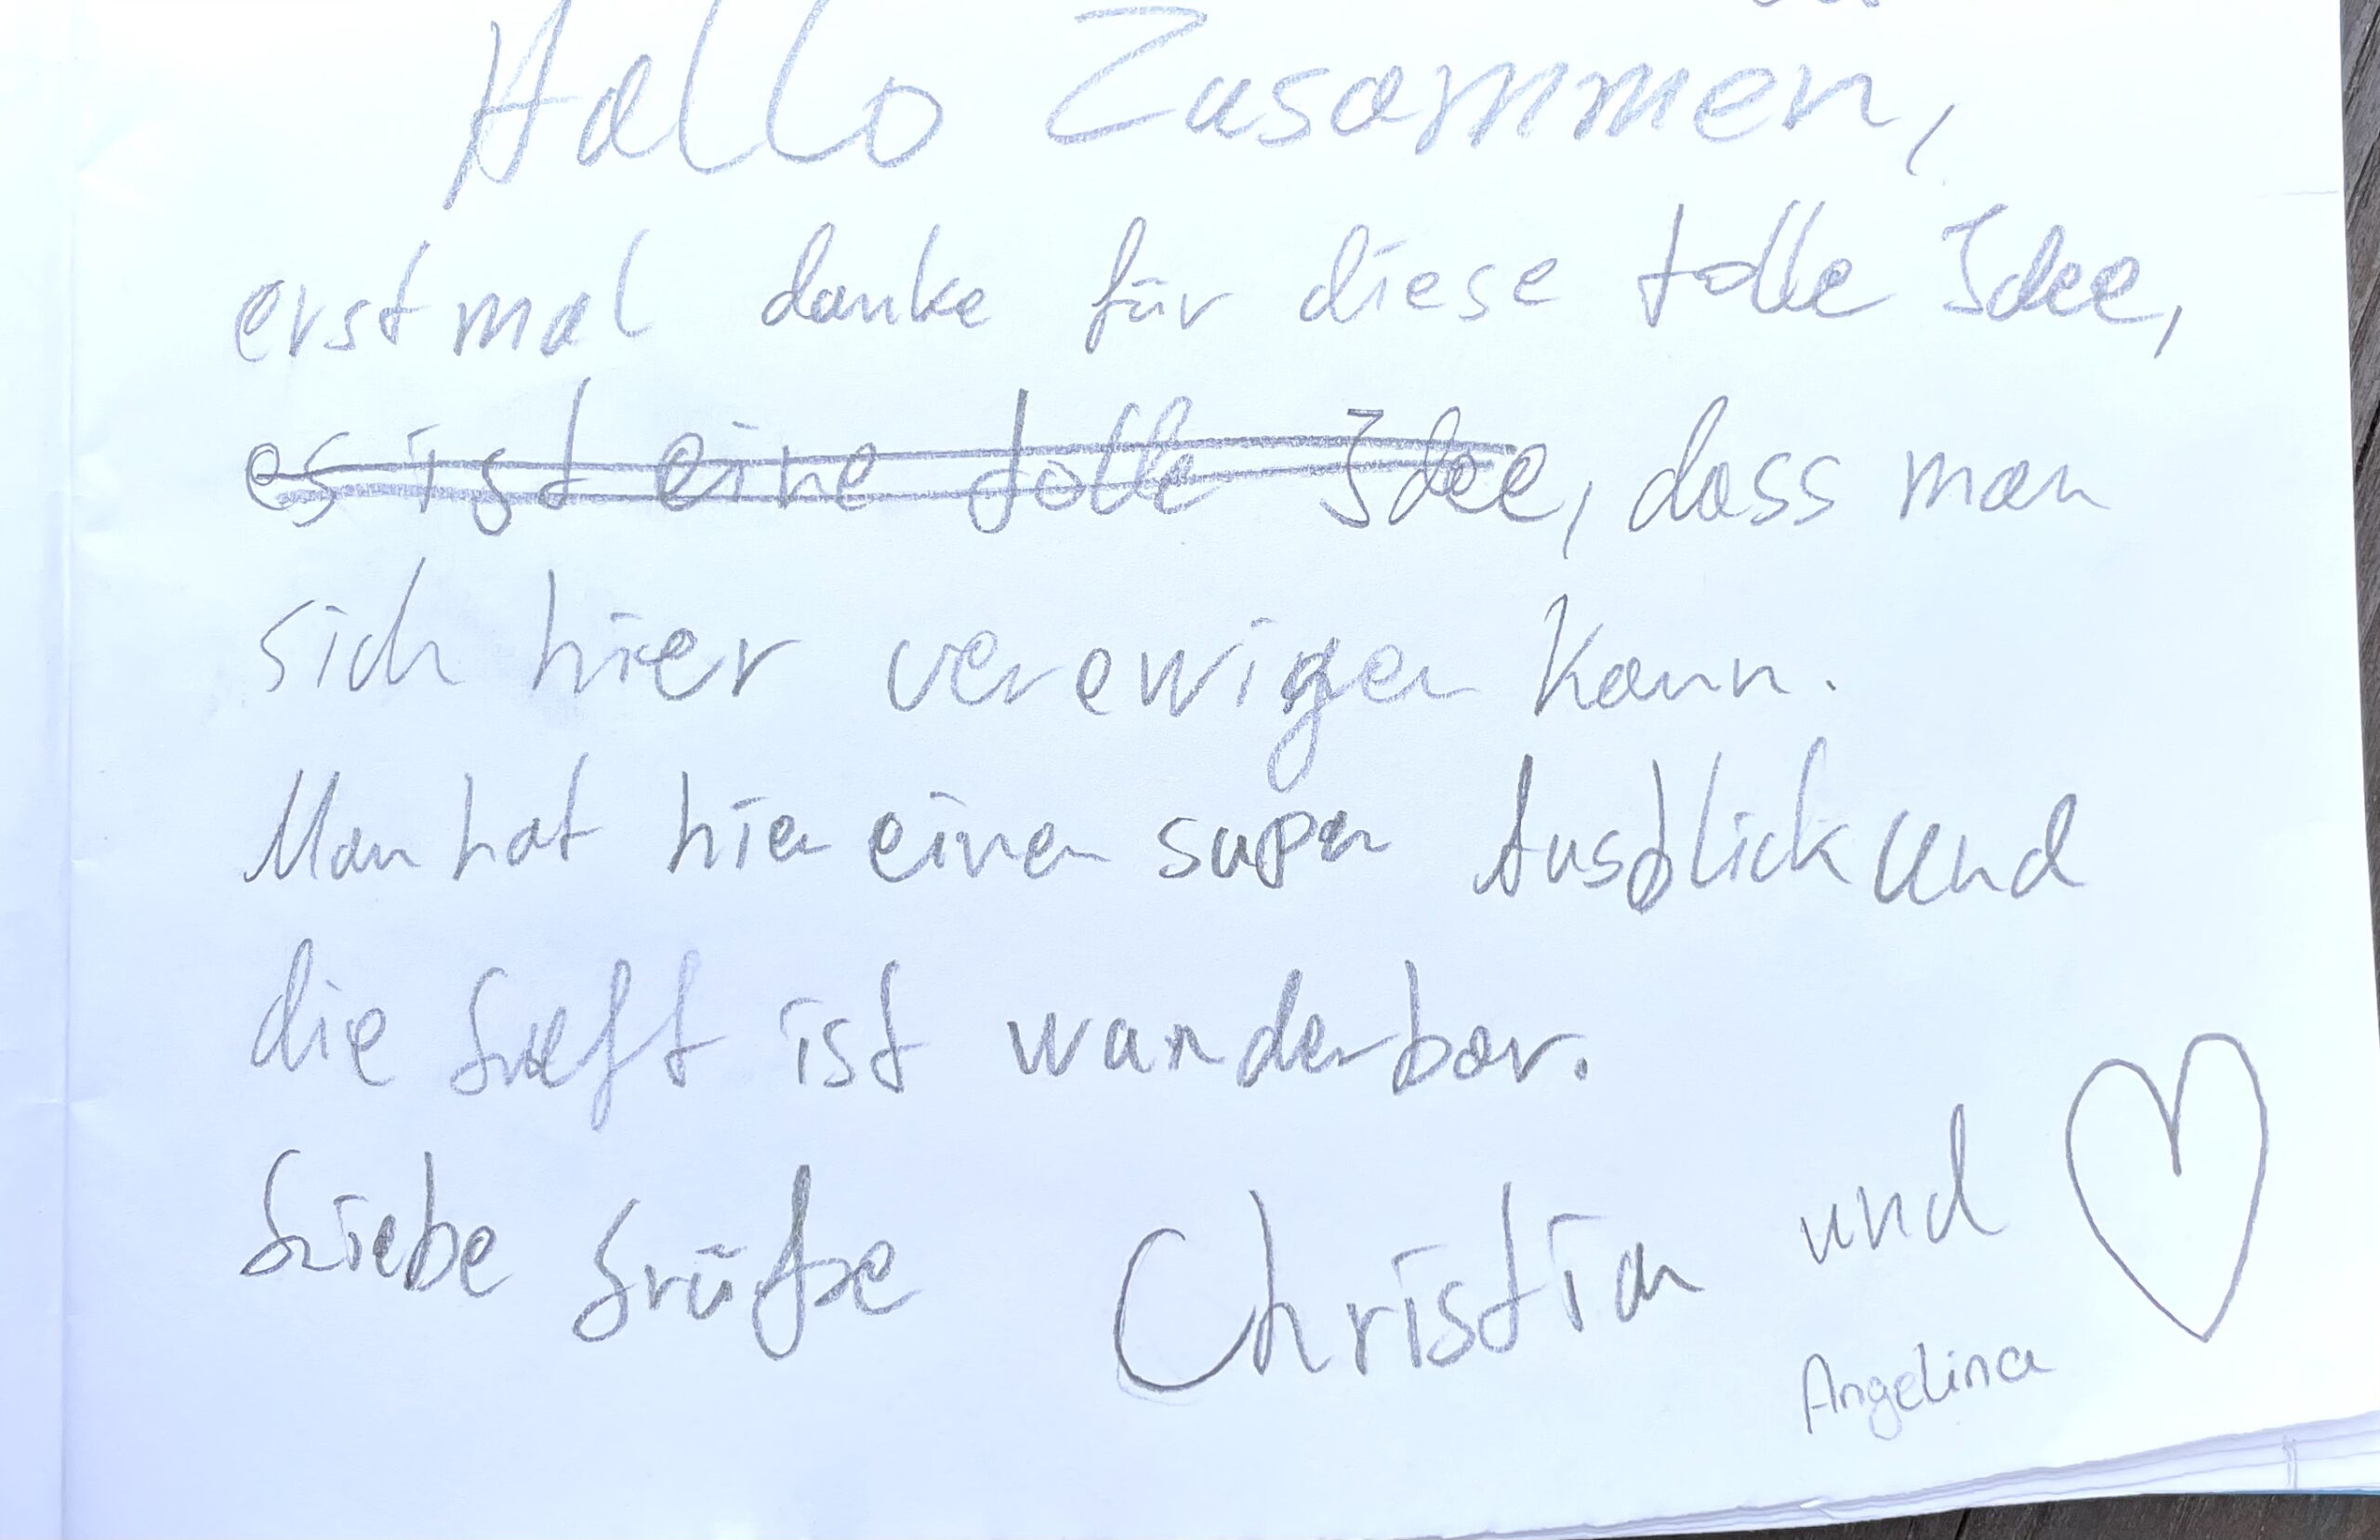 Hallo Zusammen,
erstmal danke für diese tolle Idee,
es ist eine tolle Idee, dass man
sich hier verewigen kann.
Man hat hier einen super Ausblick und
die Luft ist wunderbar.
Liebe Grüße Christian und
Angelina